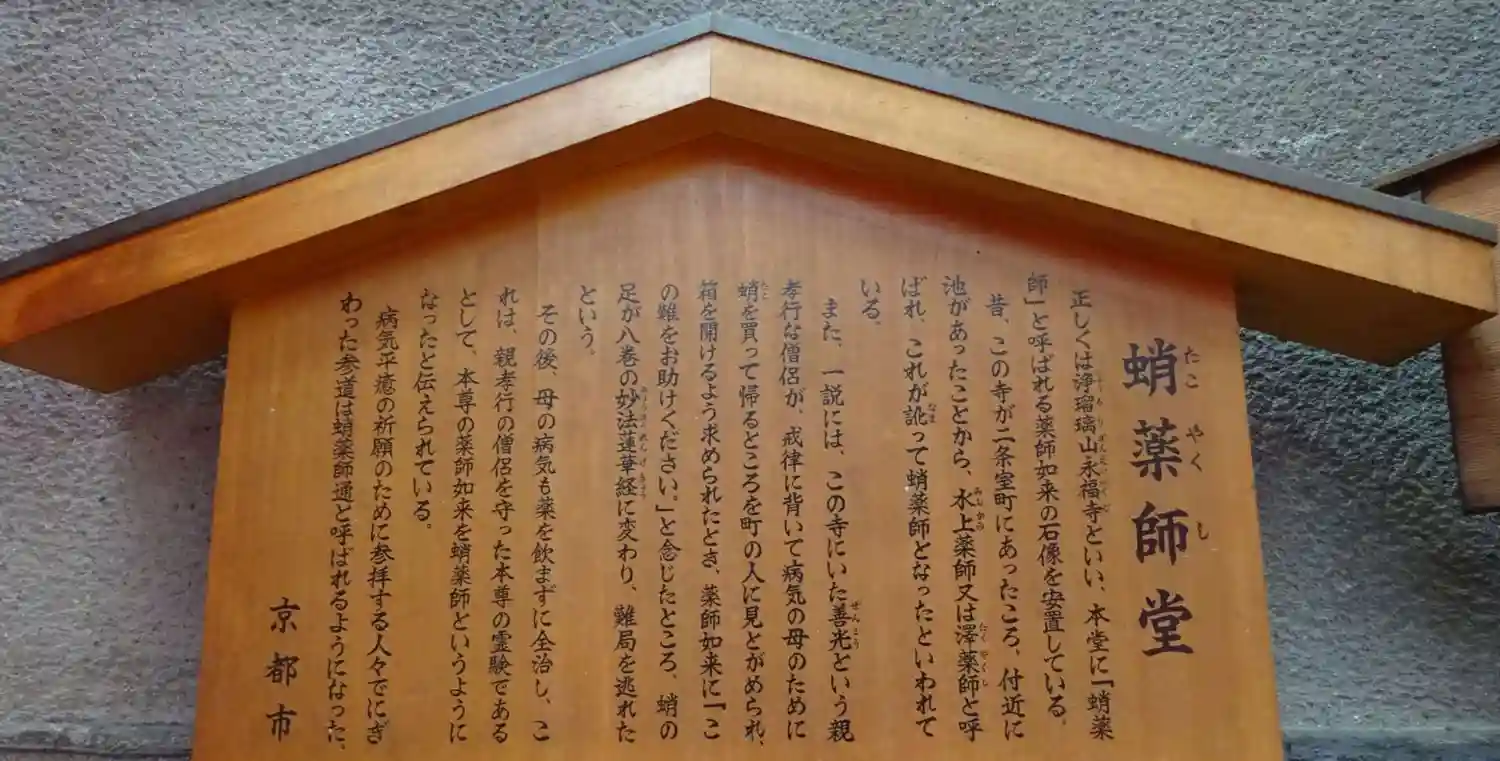 蛸薬師堂
正しくは浄瑠璃山永福寺といい、本堂に「蛸薬
師」と呼ばれる薬師如来の石像を安置している。
昔、この寺が二条室町にあったころ、付近に
池があったことから、水上薬師又は澤薬師と呼
ばれ、これが訛って蛸薬師となったといわれて
いる。
また、一説には、この寺にいた善光という親
孝行な僧侶が、戒律に背いて病気の母のために
蛸を買って帰るところを町の人に見とがめられ、
箱を開けるよう求められたとき、薬師如来に「こ
の難をお助けください。」と念じたところ、蛸の
足が八巻の妙法蓮華経に変わり、難局を逃れた
という。
その後、母の病気も薬を飲まずに全治し、こ
れは、親孝行の僧侶を守った本尊の霊験である
として、本尊の薬師如来を蛸薬師というように
なったと伝えられている。
病気平癒の祈願のために参拝する人々でにぎ
わった参道は蛸薬師通と呼ばれるようになった。
京都市